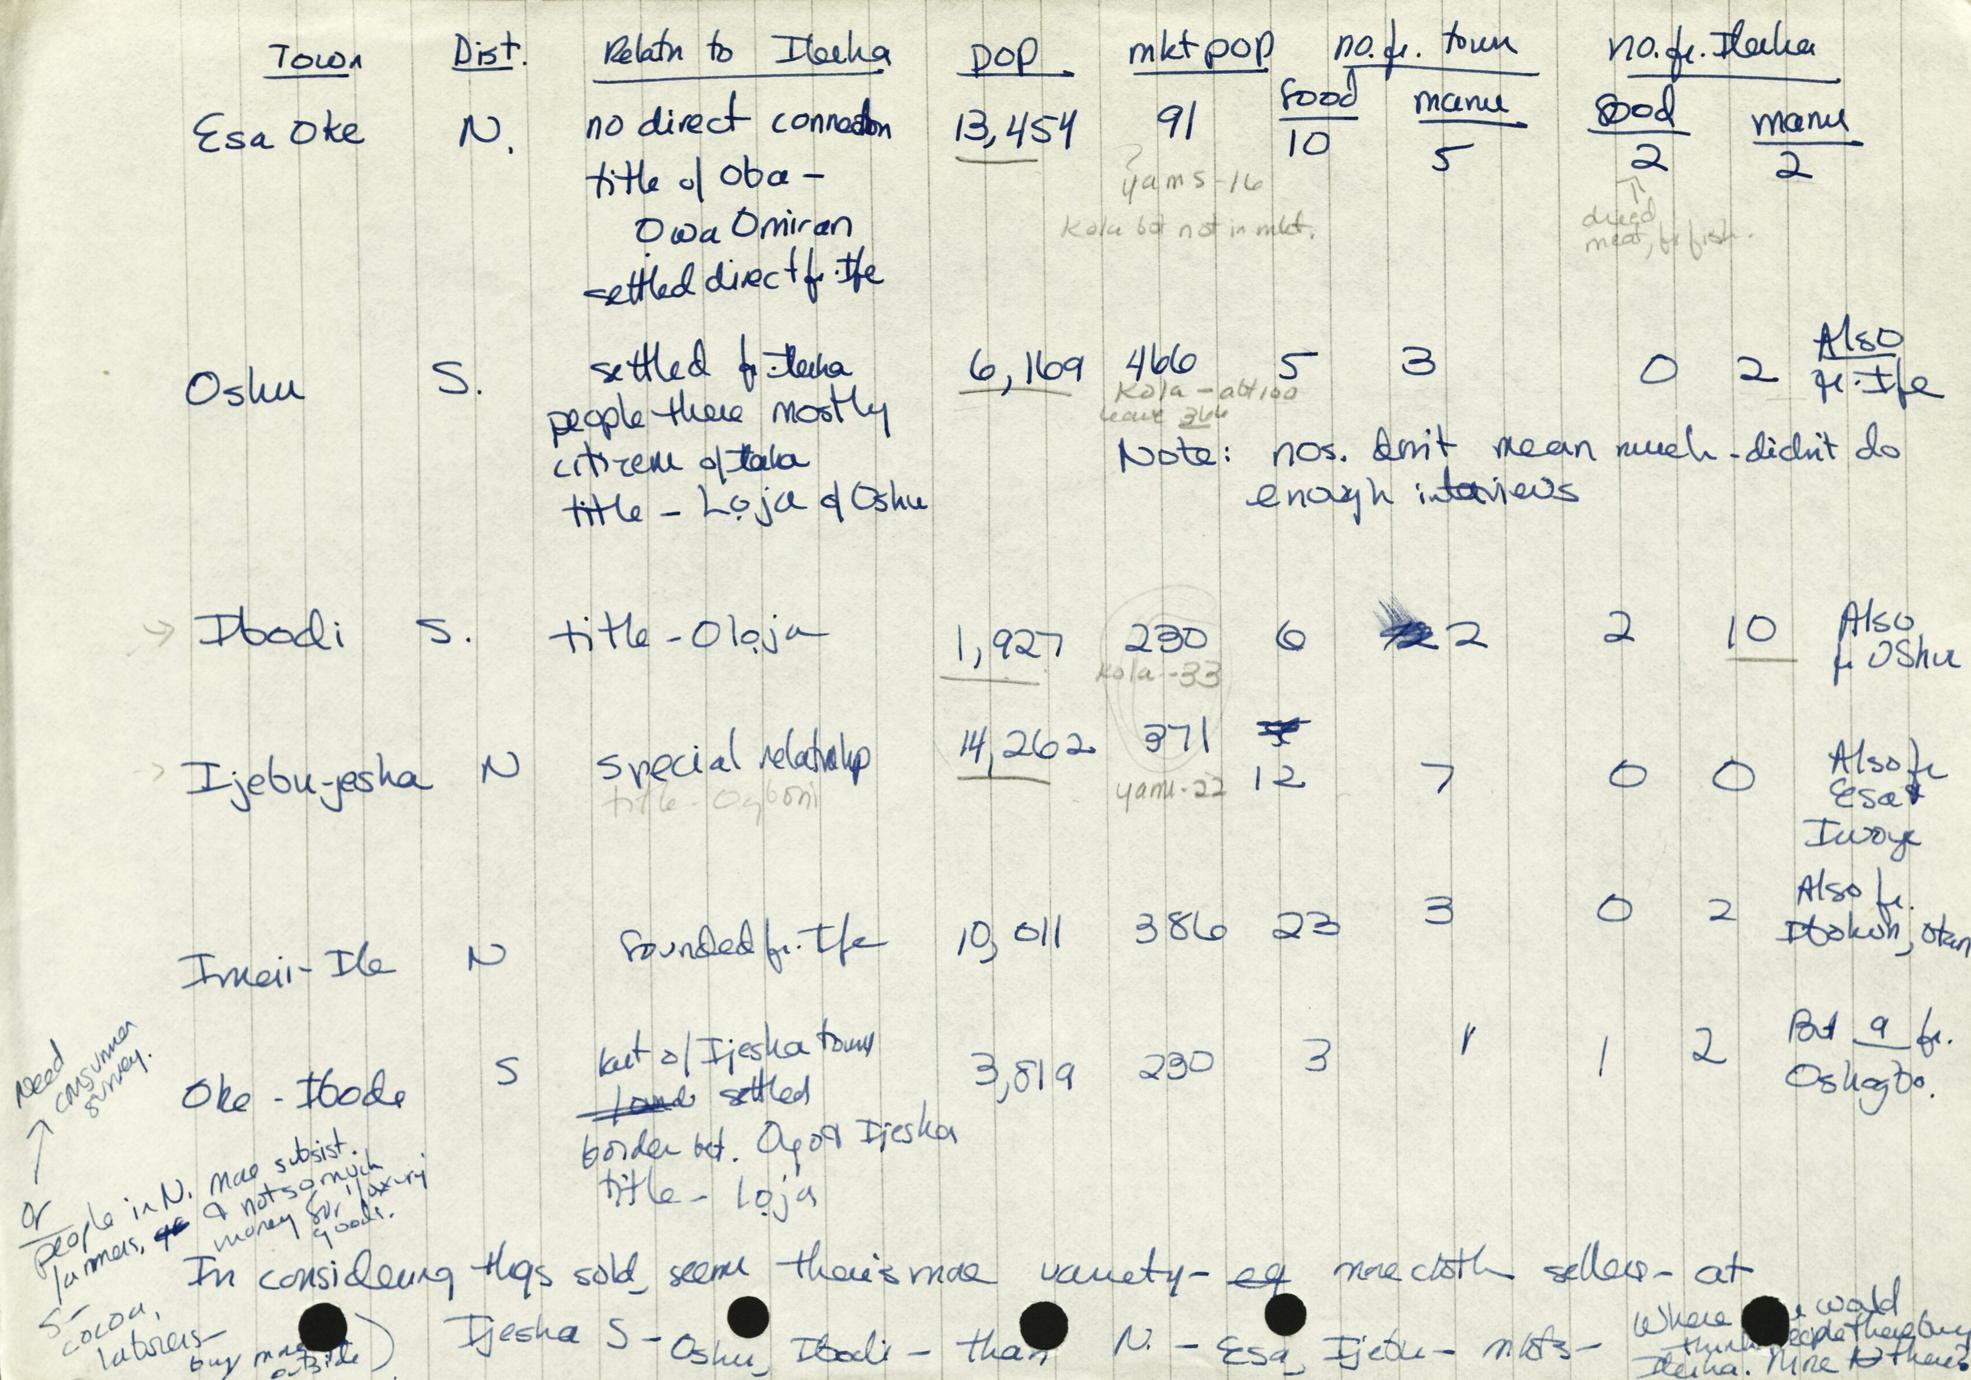 Town Dist. Relatn to Ilesha pop mkt pop no. fr. town no. fr. Ilesha
food manu food manu
Esa Oke N. no direct connection 13,454 91 10 5 2 2
title of Oba -
Owa Omiran
settled direct fr. Ife
yams - 16
Kola but not in mkt.
dried
meat, fr fish.
Oshu S. settled fr. Ilesha 6,169 466 5 3 0 2 Also
fr. Ife
people there mostly
citizens of Ilesha
title - Lọja of Oshu
Kola - abt 100
leave 366
Note: nos. don't mean much - didn't do
enough interviews
Ibodi S. title - Olọja 1,927 230 6 2 2 10 Also
fr Oshu
Kola - 33
Ijebu-jesha N special relatnship 14,262 371 12 7 0 0 Also fr
Esa &
Iwoye
title - Ogboni
yams - 22
Imesi-Ile N founded fr. Ife 10,011 386 23 3 0 2 Also fr.
Ibokun, Otan
Oke - Ibode S last of Ijesha towns 3,819 230 3 1 1 2 But 9 fr.
Oshogbo.
settled
border bet. Oyo & Ijesha
title - Lọja
Need
consumer
survey.
or
people in N. more subsist.
farmers, & not so much
money for luxury
goods.
S -
cocoa,
laborers -
buy more
outside)
In considering thgs sold, seems there's more variety - eg more cloth sellers - at
Ijesha S - Oshu, Ibodi - than N. - Esa, Ijebu - mkts -
Where would
think people there buy
Ilesha. More there?